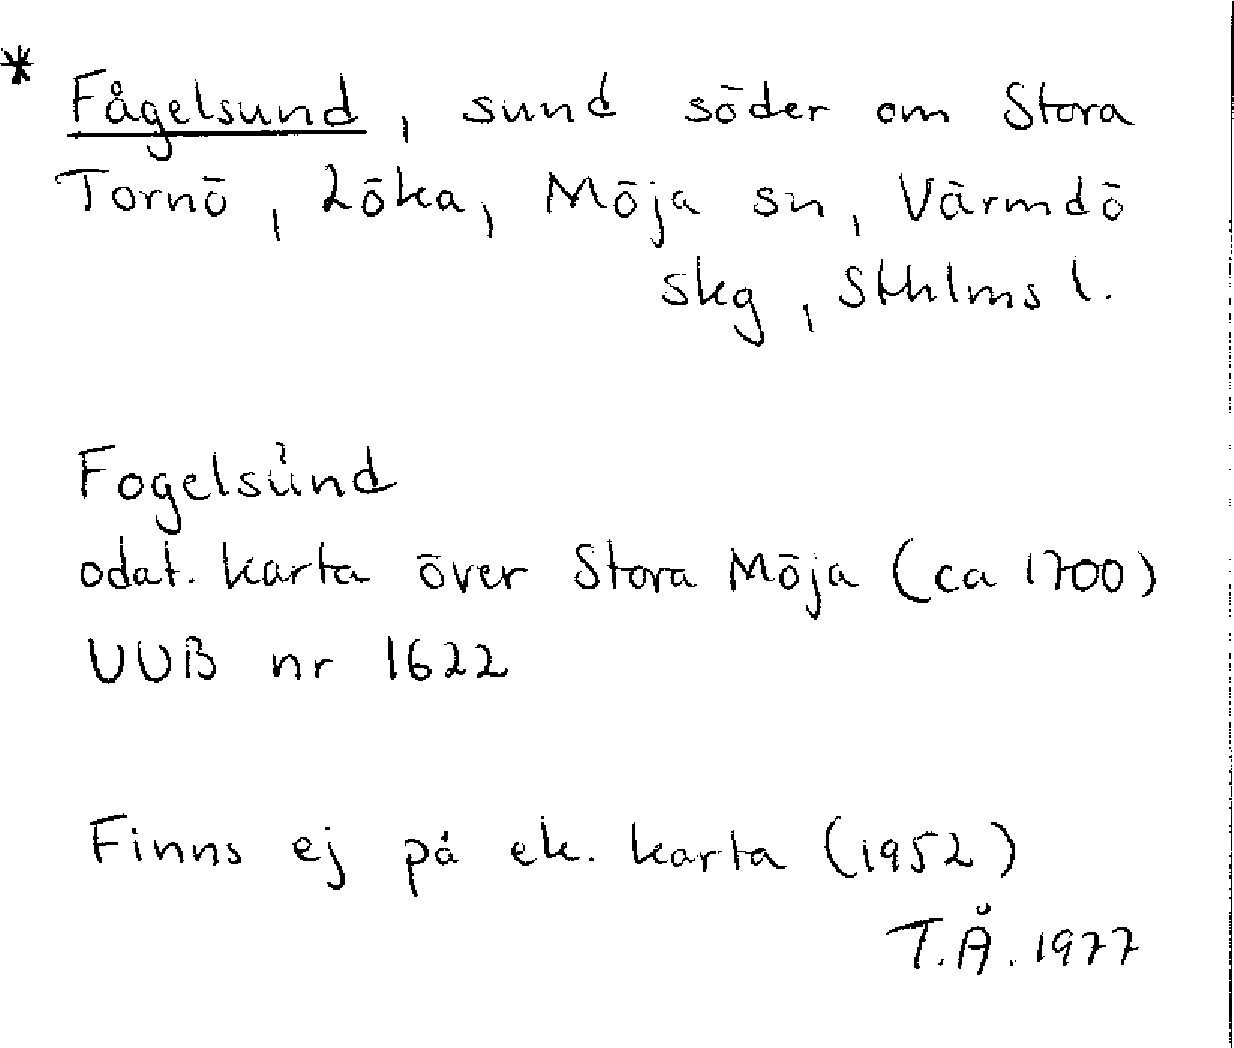 * Fågelsund, sund söder om Stora
Tornö, Löka, Möja sn, Värmdö
skg, Sthlms l.
Fogelsünd
odat. karta över Stora Möja (ca 1700)
UUB nr 1622
Finns ej på ek. karta (1952)
T.Å. 1977